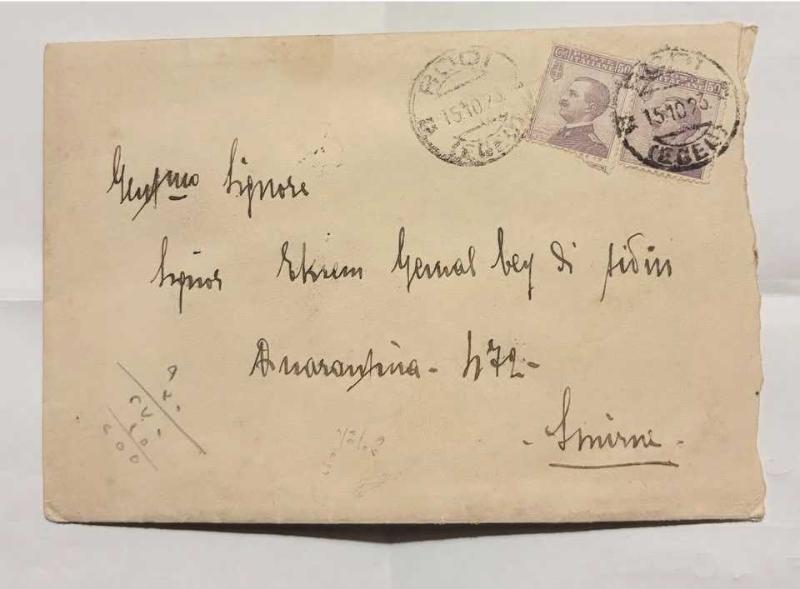 RODI
15.10.23
(EGEO)
50
50
RODI
15.10.23
(EGEO)
Gent.mo Signore
Signor Ekrem Gemal bey di Aidin
Quarantina - 472 -
- Smirne -